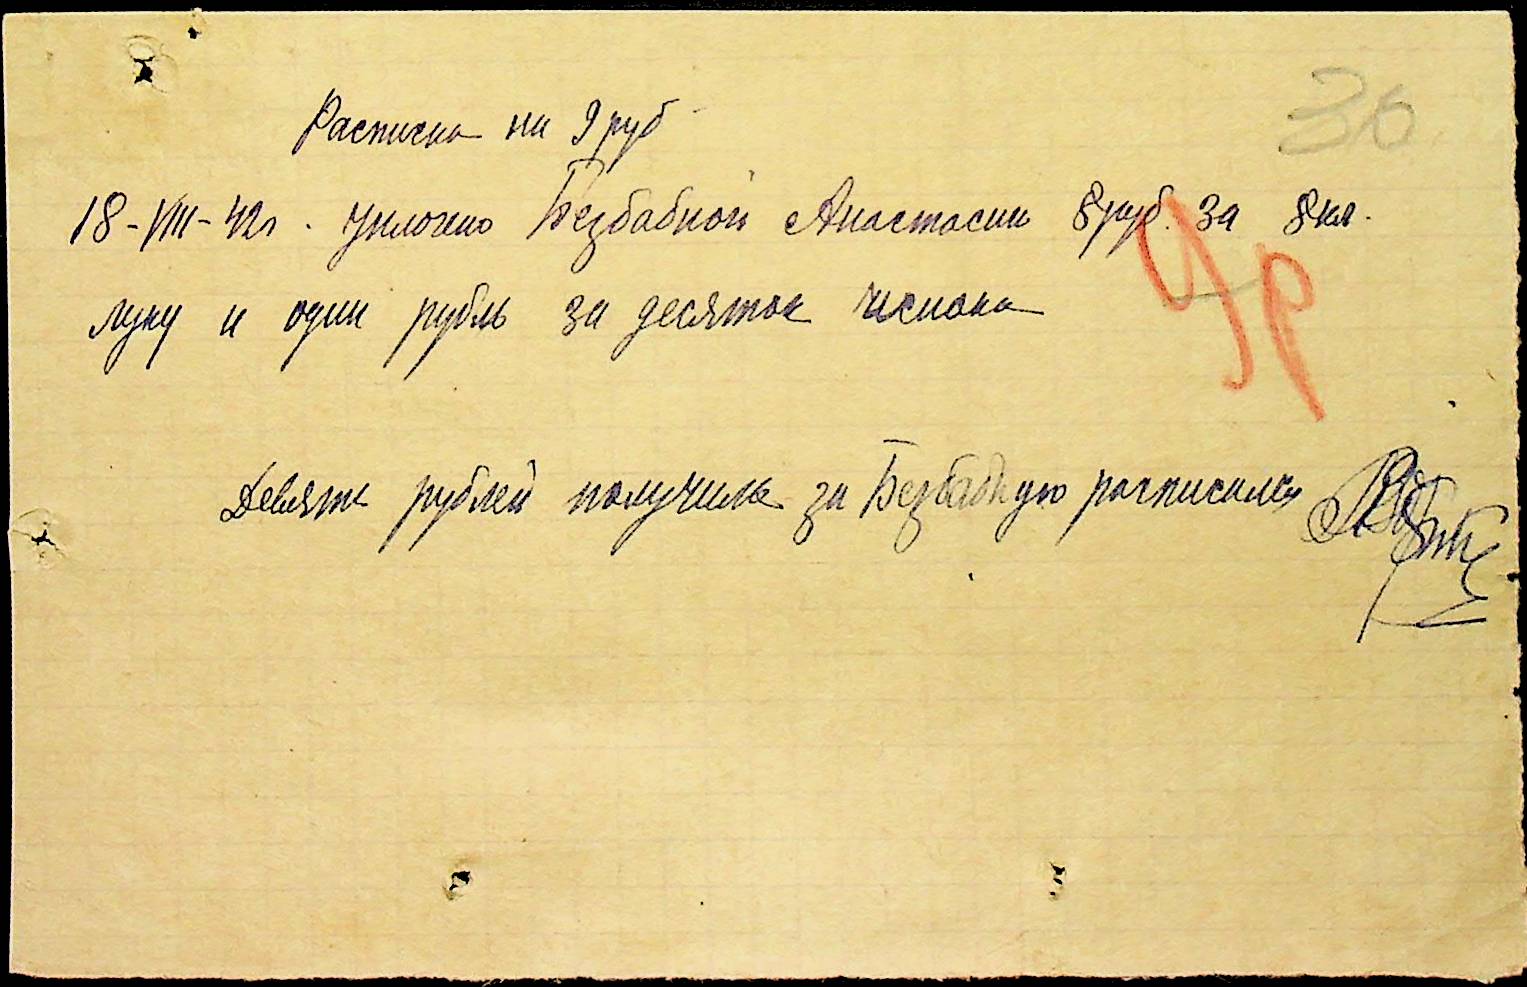 36
Расписка на 9 руб
18-VIII-42г. Уплочено Безбабной Анастасии 8 руб. за 8 кл.
луку и один рубль за десяток чеснока
9р
Девять рублей получила за Безбабную росписалась